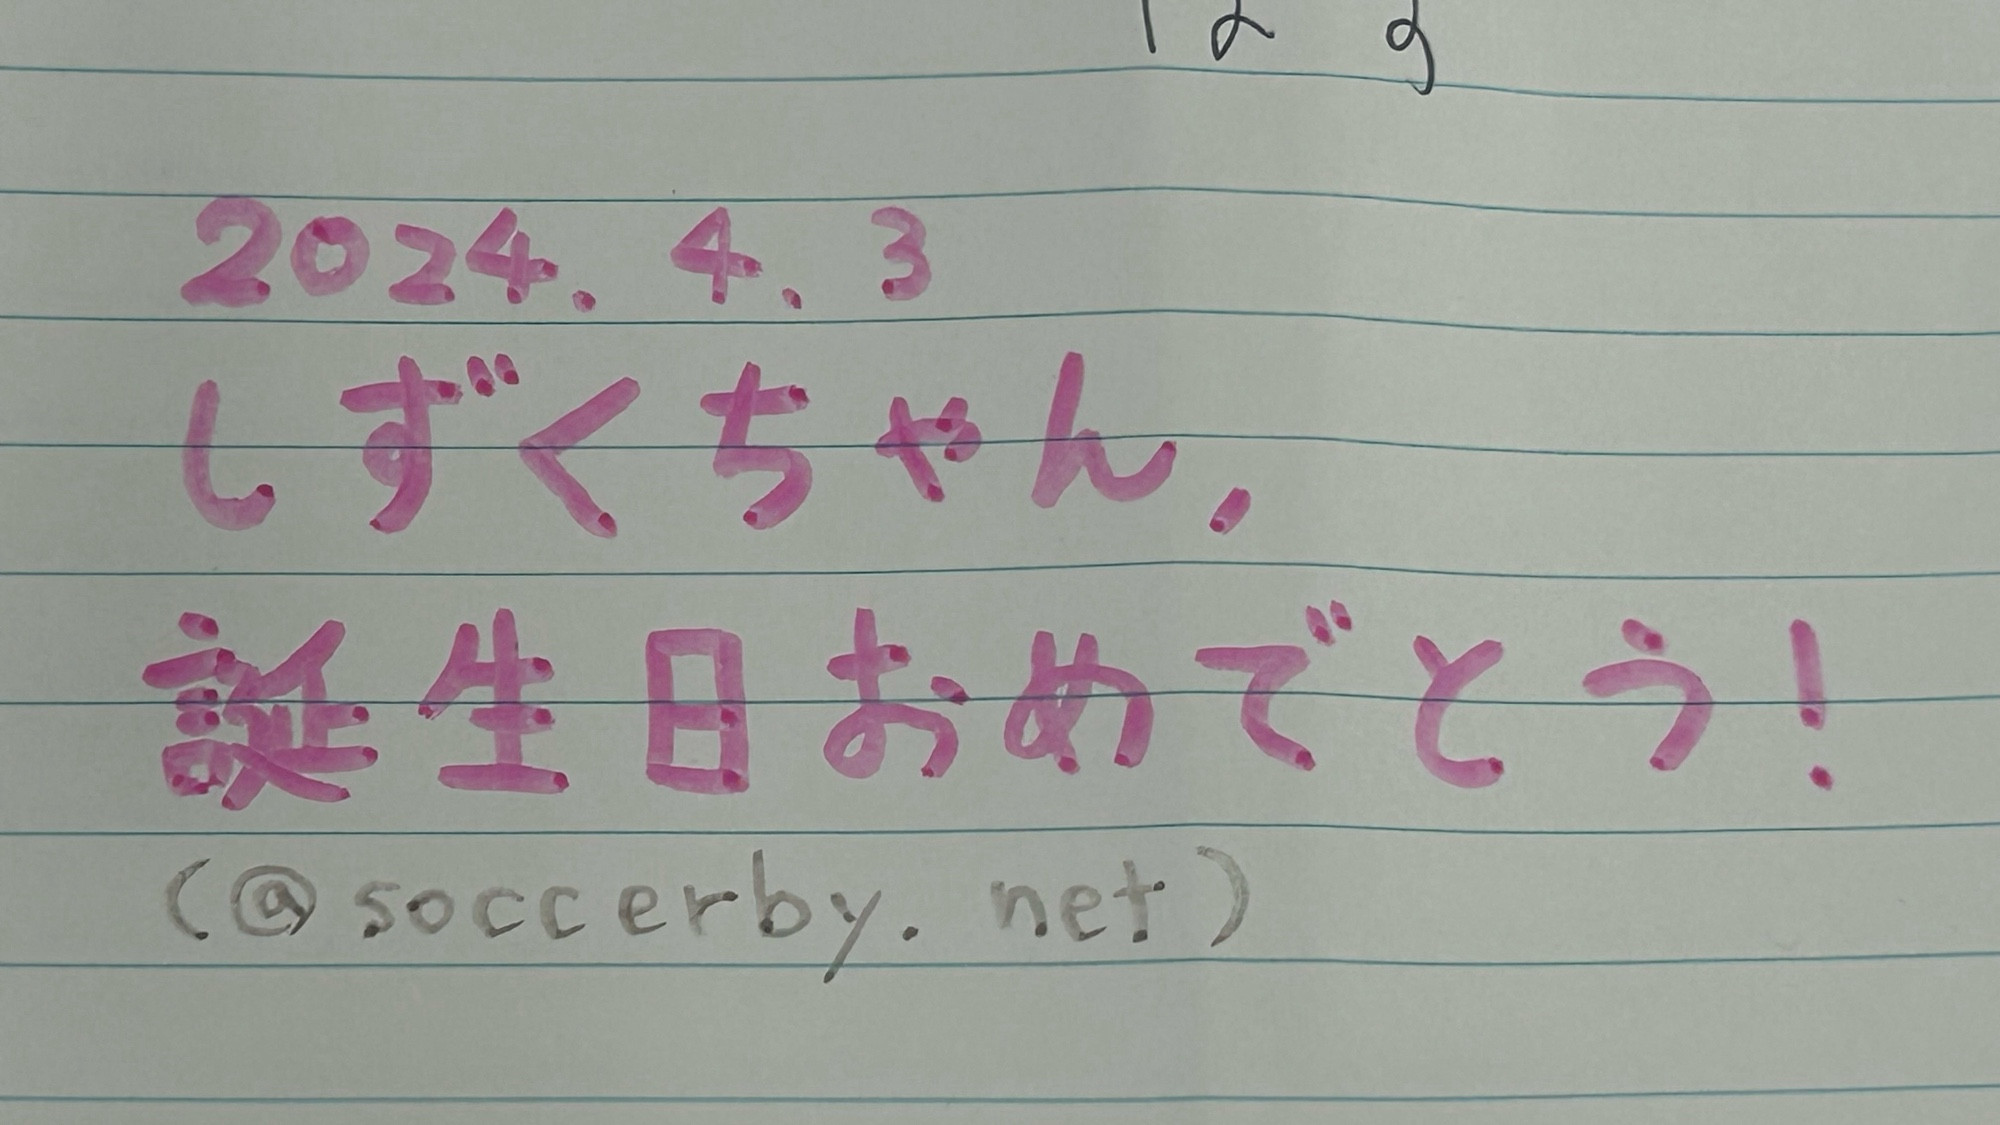 2024. 4. 3
しずくちゃん,
誕生日おめでとう!
(@soccerby. net)